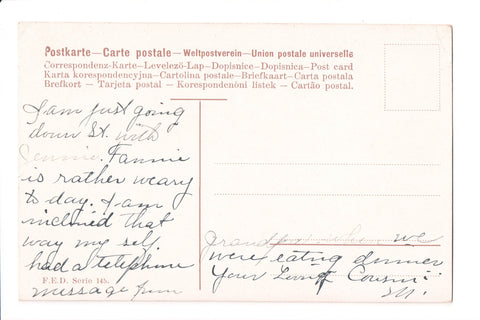 Postkarte—Carte postale—Weltpostverein—Union postale universelle
Correspondenz-Karte—Levelezö-Lap—Dopisnice—Dopisnica—Post card
Karta korespondencyjna—Cartolina postale—Briefkaart—Carta postala
Brefkort — Tarjeta postal — Korespondenóni listek — Cartão postal.
I am just going
down St. with
Jennie. Fannie
is rather weary
to day. I am
inclined that
way my self.
had a telephone
message from
F.E.D. Serie 145.
we
were eating dinner
Your Loving Cousin